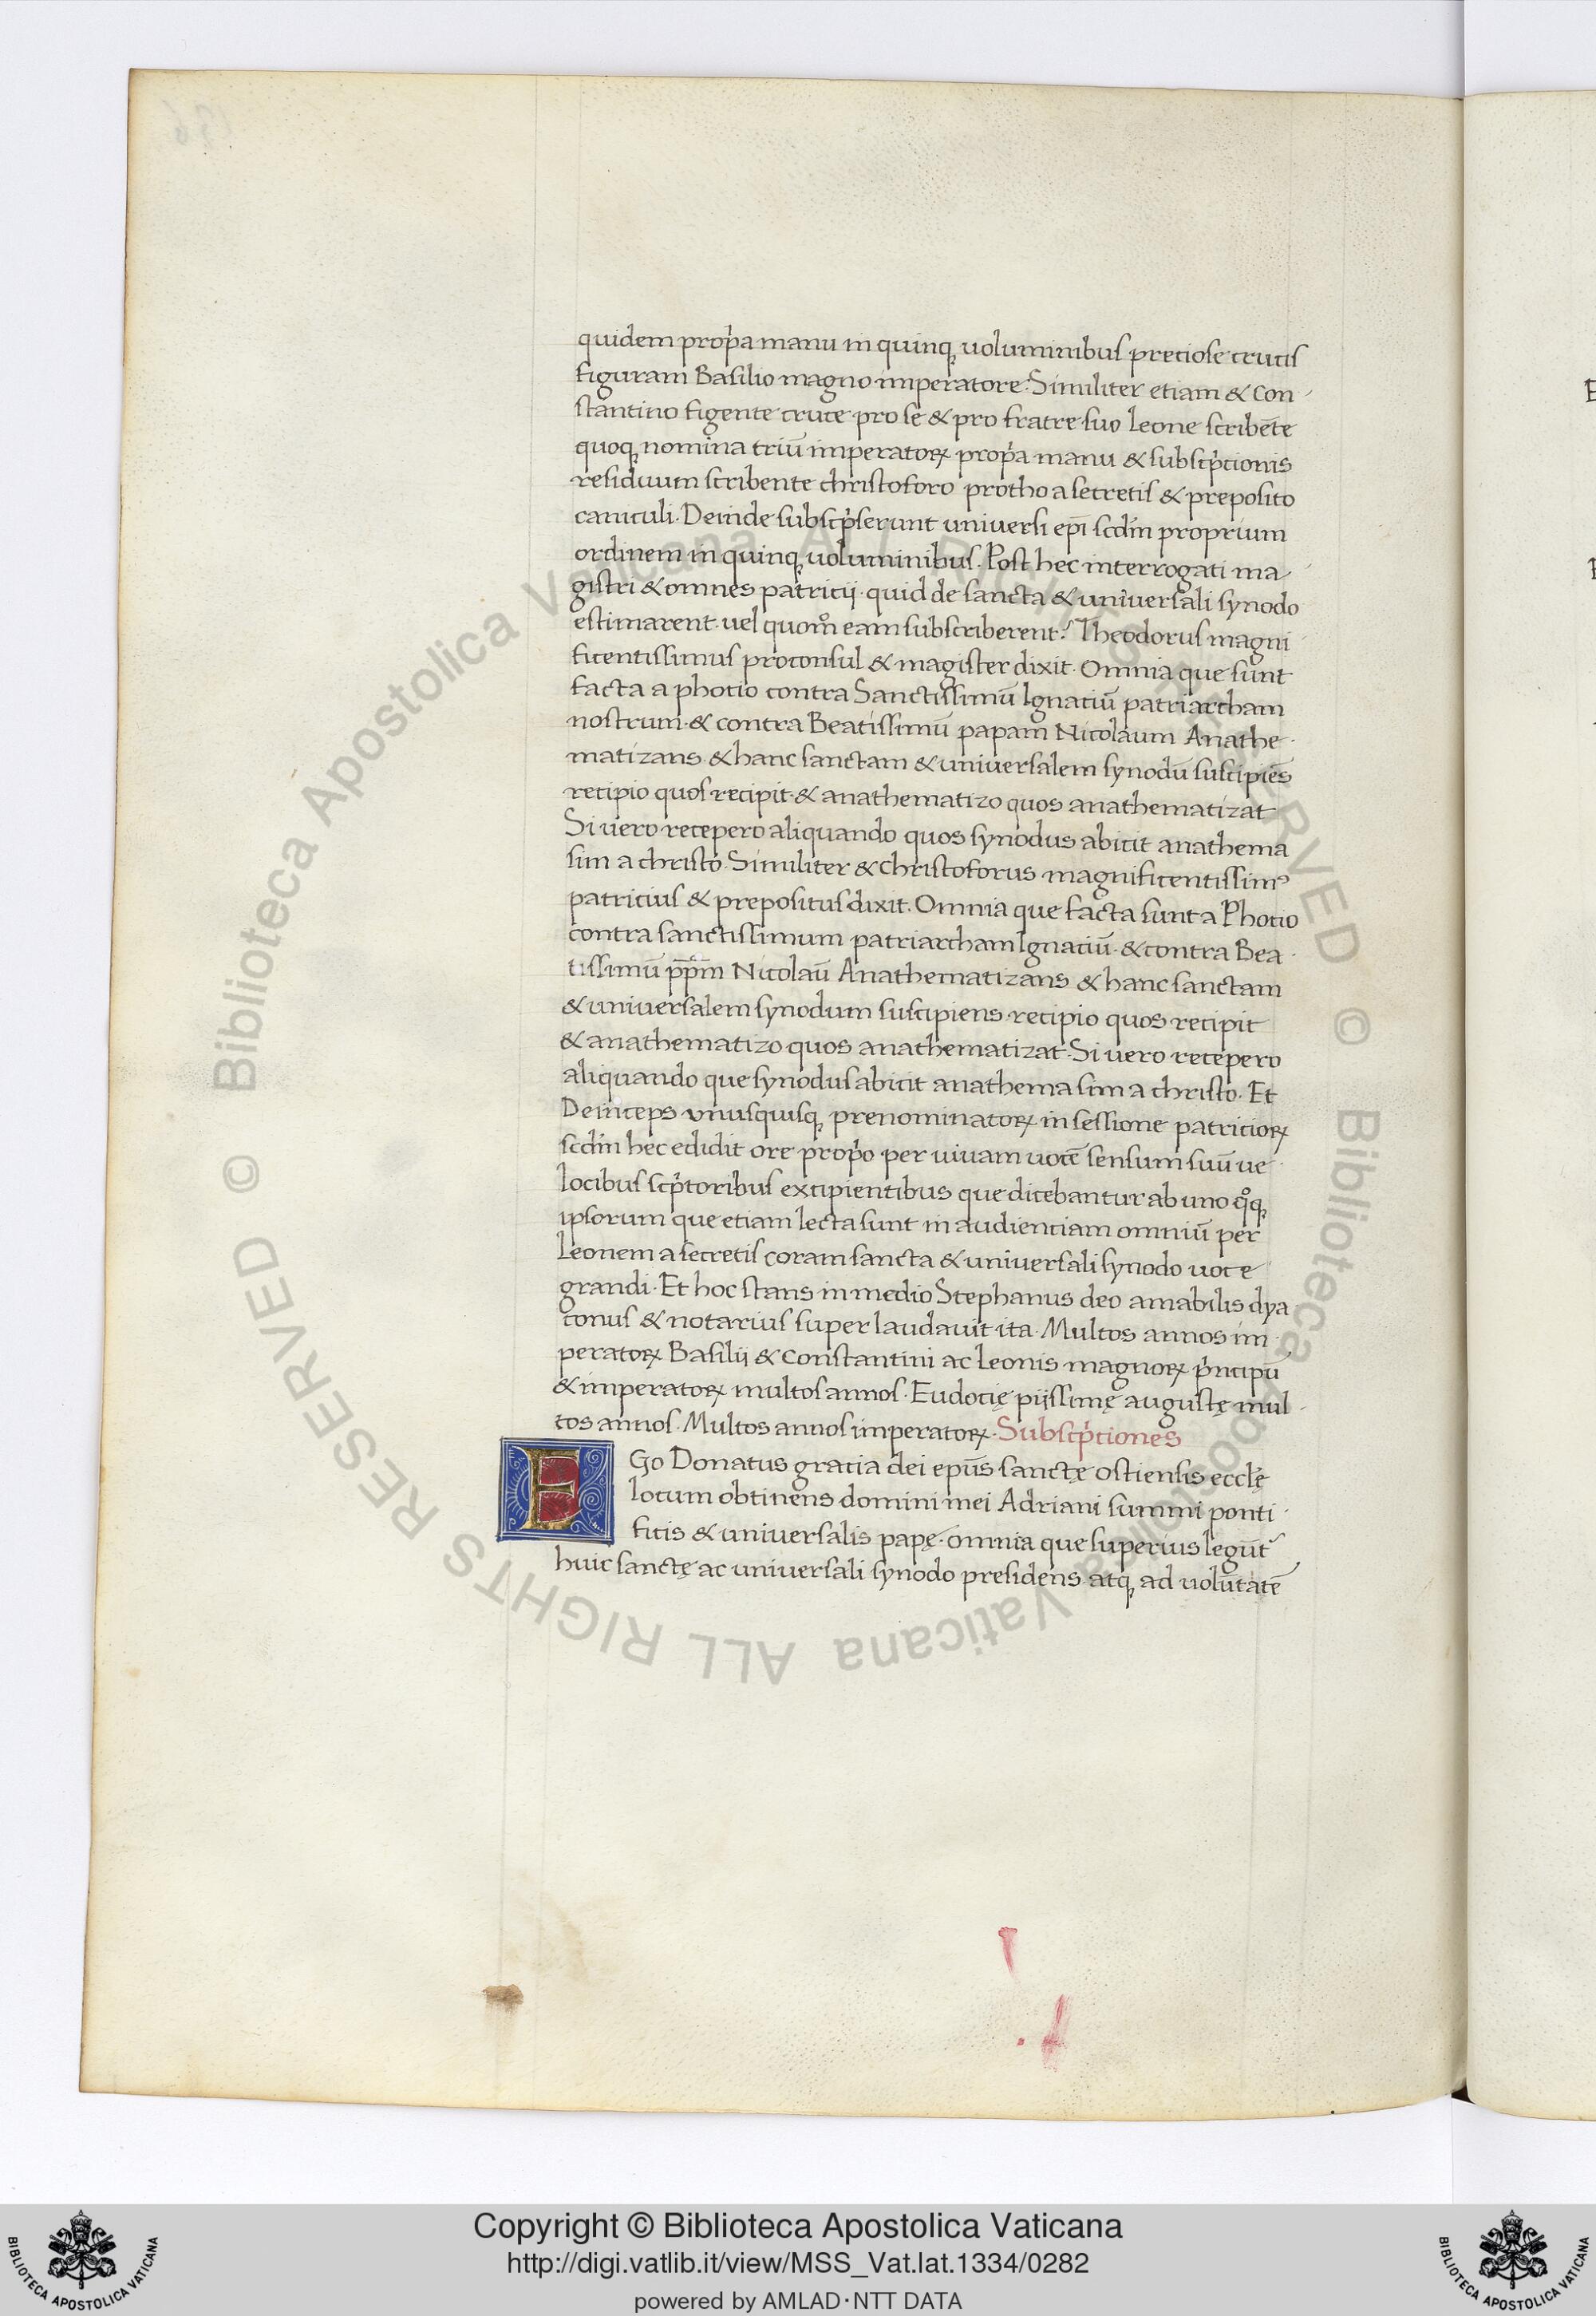 quidem prop̃a manu in quinq; uoluminibus preciose crucis
figuram Basilio magno imperatore. Similiter etiam & Con
stantino figente cruce pro se & pro fratre suo Leone scribẽte
quoq; nomina triũ imperatoꝝ prop̃a manu & subscp̃tionis
residuum scribente christoforo protho a secretis & preposito
caniculi. Deinde subscp̃serunt universi epĩ scđm proprium
ordinem in quinq; uoluminibus. Post hec interrogati ma
gistri & omnes patricij quid de sancta & universali synodo
estimarent. uel quom̊ eam subscriberent? Theodorus magni
ficentissimus proconsul & magister dixit. Omnia que sunt
facta a photio contra Sanctissimũ Ignatiũ patriarcham
nostrum. & contra Beatissimũ papam Nicolaum Anathe
matizans & hanc sanctam & universalem synodũ suscipiẽs
recipio quos recipit. & anathematizo quos anathematizat
Si uero recepero aliquando quos synodus abicit anathema
sim a christo. Similiter & Christoforus magnificentissimꝰ
patricius & prepositus dixit. Omnia que facta sunt a Photio
contra sanctissimum patriarcham Ignatiũ. & contra Bea
tissimũ pp̃m Nicolaũ Anathematizans & hanc sanctam
& universalem synodum suscipiens recipio quos recipit
& anathematizo quos anathematizat. Si uero recepero
aliquando que synodus abicit anathema sim a christo. Et
Deinceps vnusquisq; prenominatoꝝ in sessione patricioꝝ
scđm hec edidit ore prop̃o per uiuam uocẽ sensum suũ ue
locibus scp̃toribus excipientibus que dicebantur ab uno q̊q;
ipsorum que etiam lecta sunt in audientiam omniũ per
Leonem a secretis coram sancta & universali synodo uoce
grandi. Et hoc stans in medio Stephanus deo amabilis dya
conus & notarius super laudauit ita. Multos annos im
peratoꝝ Basilij & Constantini ac Leonis magnoꝝ p̃ncipũ
& imperatoꝝ multos annos. Eudocię pijssimę augustę mul
tos annos. Multos annos imperatoꝝ. Subscp̃tiones
EGo Donatus gratia dei epũs sanctę ostiensis ecclẹ
locum obtinens domini mei Adriani summi ponti
ficis & universalis papę. omnia que superius legũt᷑
huic sanctę ac universali synodo presidens atq; ad uolũtatẽ
Copyright © Biblioteca Apostolica Vaticana
http://digi.vatlib.it/view/MSS_Vat.lat.1334/0282
powered by AMLAD·NTT DATA
© Biblioteca Apostolica Vaticana ALL RIGHTS RESERVED © Biblioteca Apostolica Vaticana ALL RIGHTS RESERVED
BIBLIOTECA APOSTOLICA VATICANA
BIBLIOTECA APOSTOLICA VATICANA